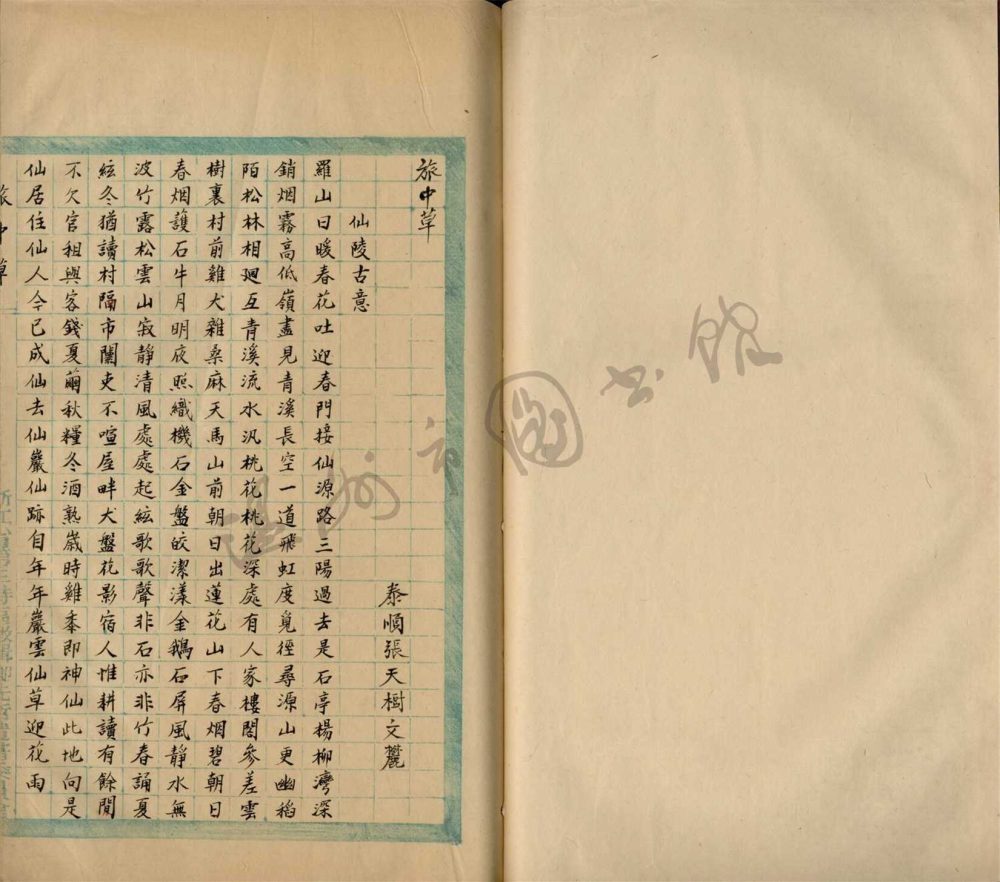 旅中草
泰順張天樹文麓
仙陵古意
羅山日暖春花吐迎春門接仙源路三陽過去是石亭楊柳灣深
銷烟霧高低嶺盡見青溪長空一道飛虹度覓徑尋源山更幽稻
陌松林相迴互青溪流水汎桃花桃花深處有人家樓閣參差雲
樹裏村前雞犬雜桑麻天馬山前朝日出蓮花山下春烟碧朝日
春烟護石牛月明夜照織機石金盤皎潔漾金鵝石屏風靜水無
波竹露松雲山寂靜清風處處起絃歌歌聲非石亦非竹春誦夏
絃冬猶讀村隔市闤吏不喧屋畔犬盤花影宿人惟耕讀有餘閒
不欠官租與客錢夏繭秋糧冬酒熟歲時雞黍即神仙此地向是
仙居住仙人今已成仙去仙巖仙跡自年年巖雲仙草迎花雨
旅中草
温州市圖書館